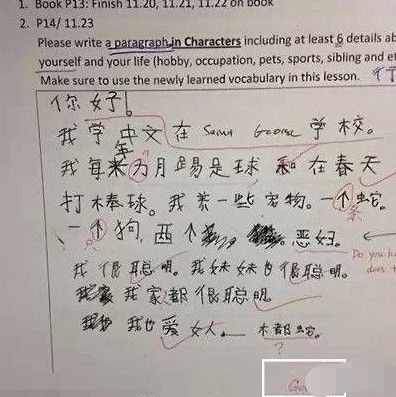 1. Book P13: Finish 11.20, 11.21, 11.22 on book
2. P14/ 11.23
Please write a paragraph in Characters including at least 6 details ab
yourself and your life (hobby, occupation, pets, sports, sibling and et
Make sure to use the newly learned vocabulary in this lesson.
你好!
我学中文在 George 学校。
我每来力月踢足球 和 在春天
打棒球。我养一些宠物。一个蛇。
一个狗, 两个 。恶妇。
我很聪明。我妹妹也很聪明。
我家都很聪明。
我也爱女人…… 木都蛇。
条
Do you
does
?